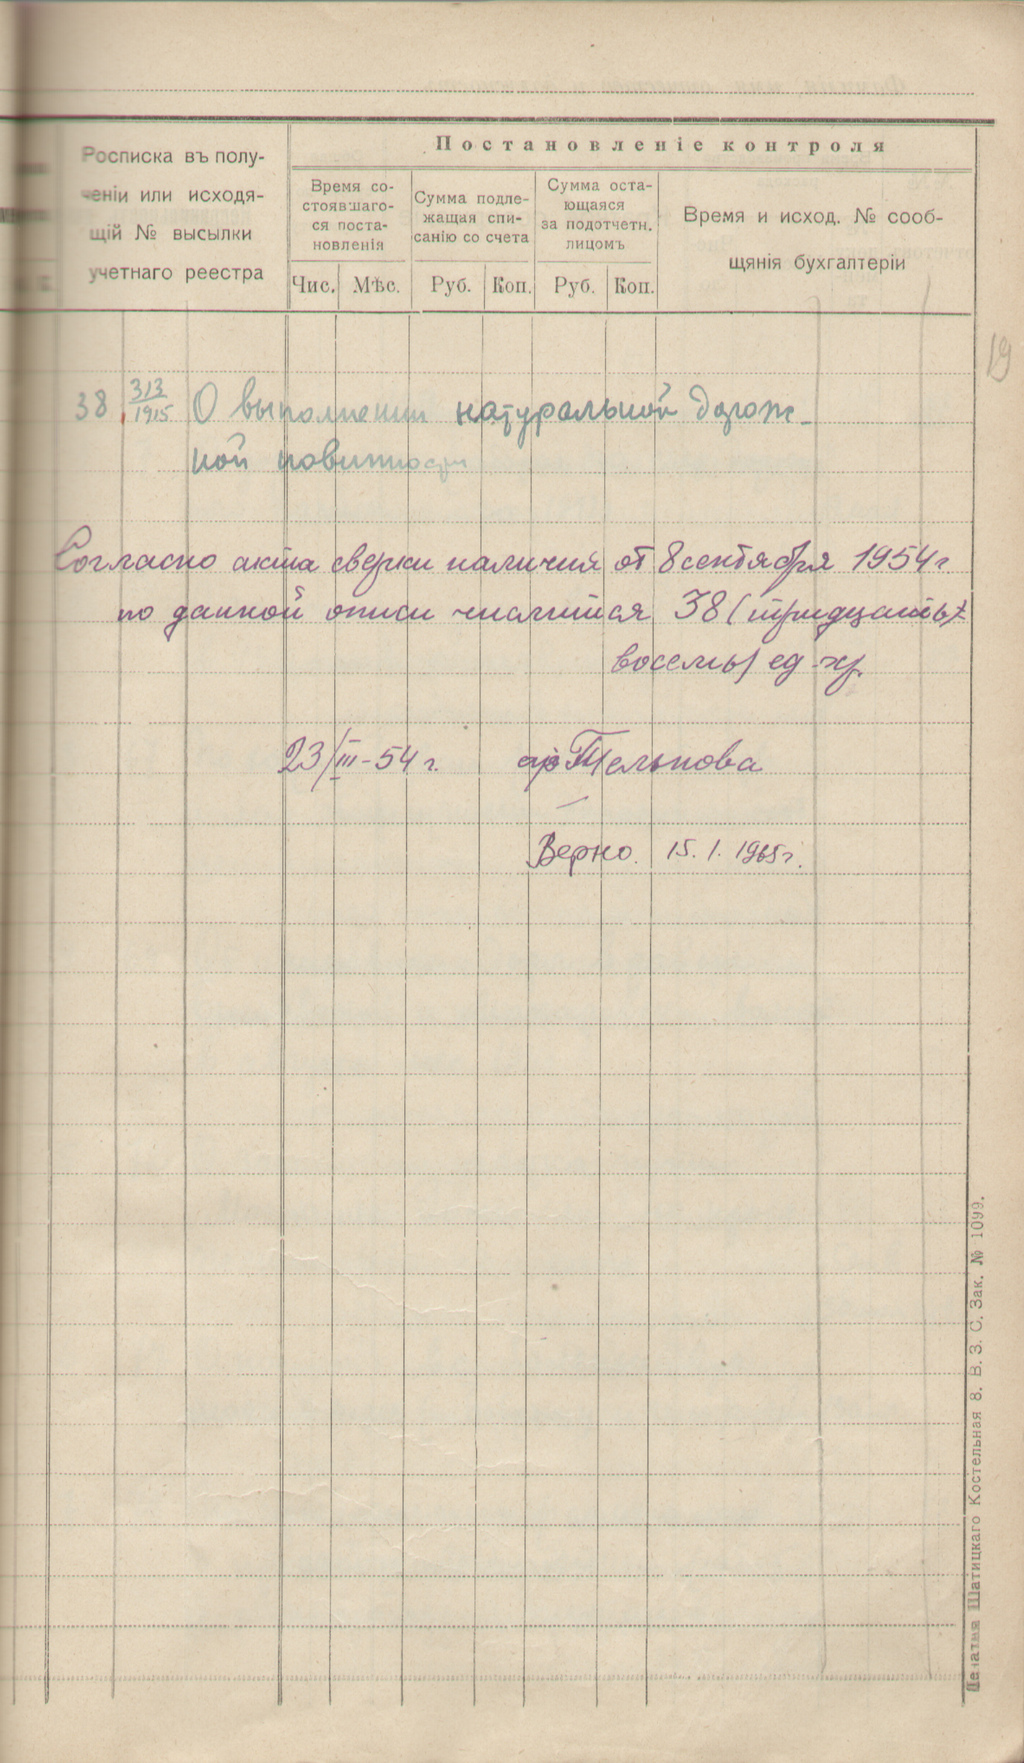 Постановленіе контроля
Росписка въ полу-
ченіи или исходя-
щій № высылки
учетнаго реестра
Время со-
стоявшаго-
ся поста-
новленія
Сумма подле-
жащая спи-
санію со счета
Сумма оста-
ющаяся
за подотчетн.
лицомъ
Время и исход. № сооб-
щянія бухгалтеріи
Чис. Мѣс. Руб. Коп. Руб. Коп.
19
38 313/1915 О выполнении натуральной дорож-
ной повинности
Согласно акта сверки наличия от 8 сентября 1954 г.
по данной описи числится 38 (тридцать
восемь) ед. хр.
23/III-54 г. Тельнова
Верно. 15.1.1965 г.
Печатня Шатицкаго Костельная 8. В. З. С. Зак. № 1099.